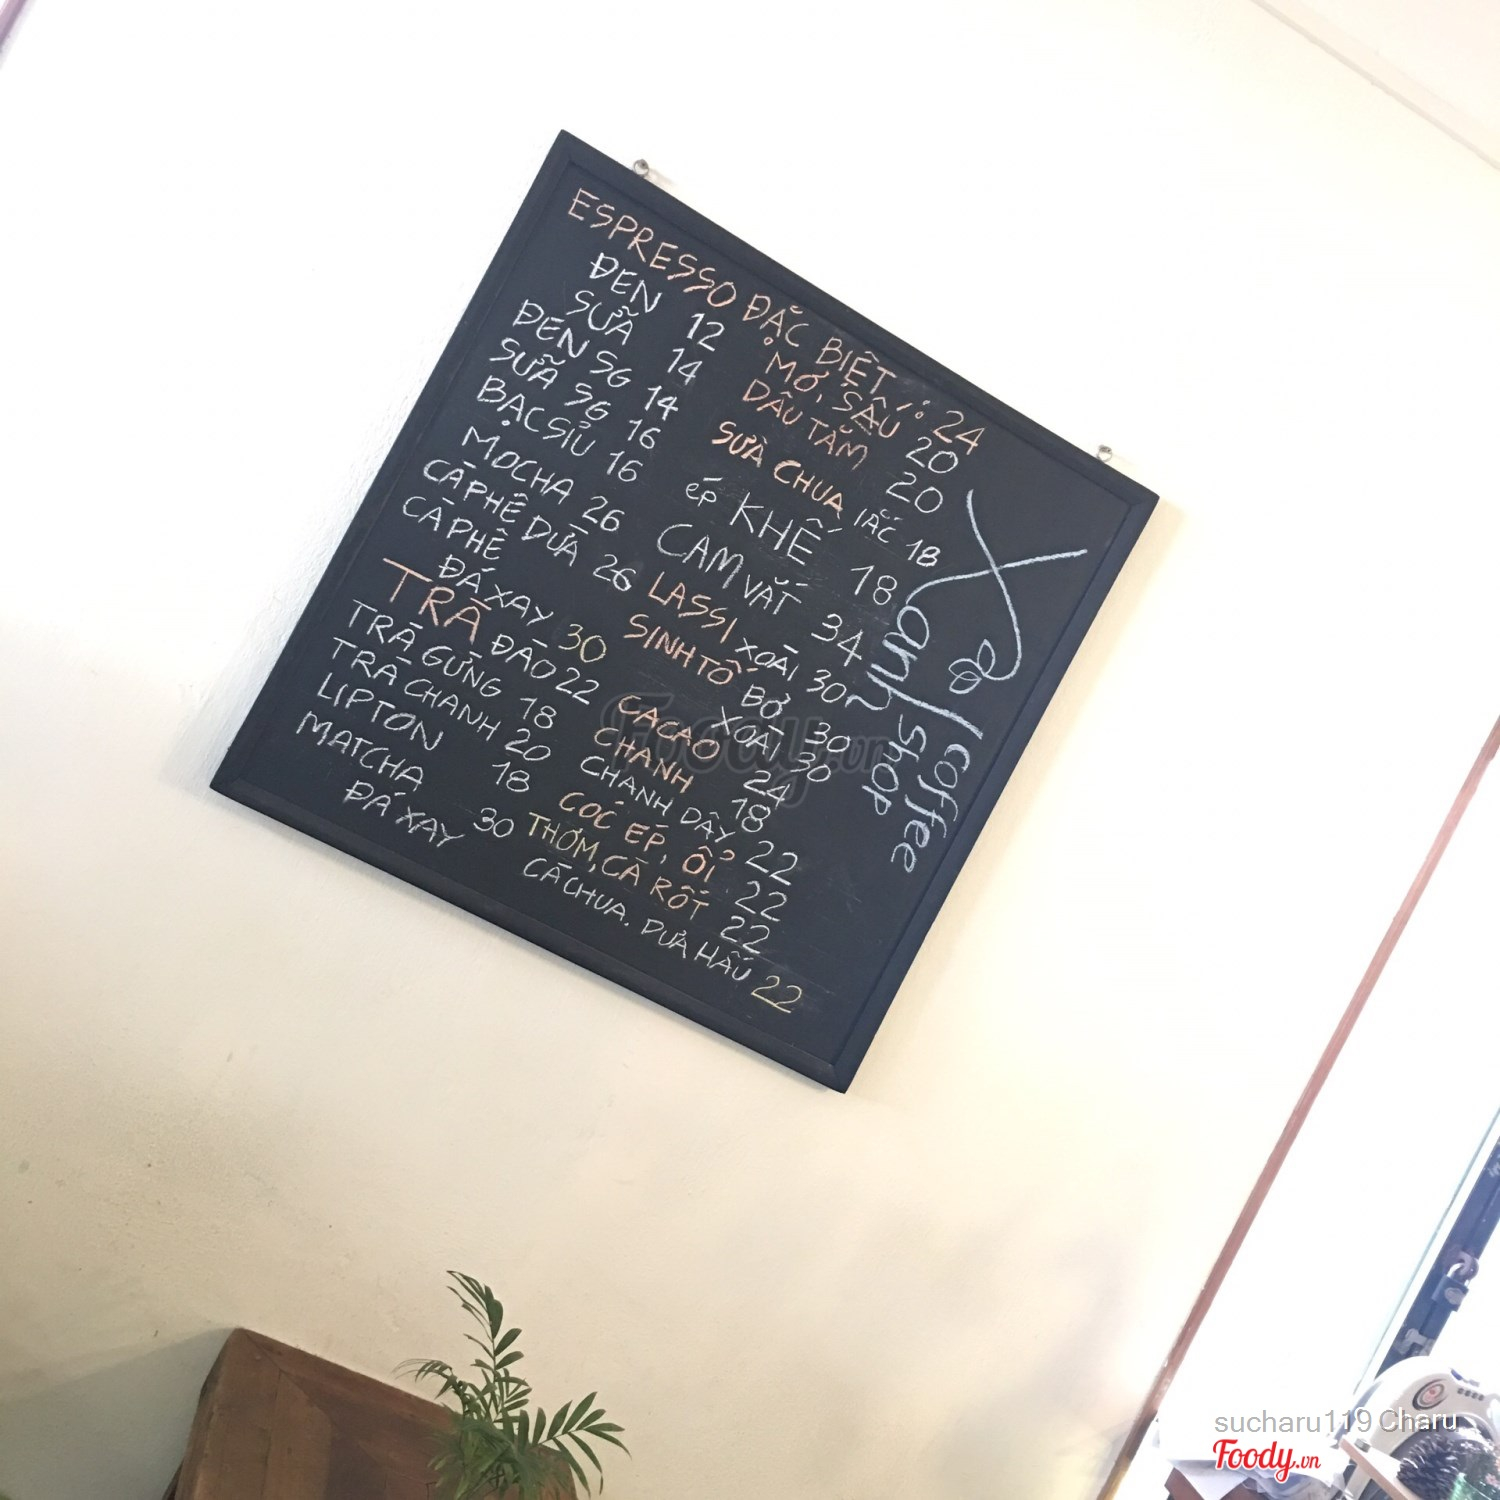 ESPRESSO ĐẶC BIỆT 24
ĐEN 12
SỮA 14
ĐEN SG 14
SỮA SG 16
BẠC SỈU 16
MOCHA 26
CÀ PHÊ DỪA 26
CÀ PHÊ
ĐÁ XAY 30
TRÀ ĐÀO 22
TRÀ GỪNG 18
TRÀ CHANH 20
LIPTON 18
MATCHA
ĐÁ XAY 30
MƠ, SẤU 20
DÂU TẰM 20
SỮA CHUA lắc 18
ÉP KHẾ 18
CAM VẮT 34
LASSI XOÀI 30
SINH TỐ BƠ 30
XOÀI 30
CACAO 24
CHANH 18
CHANH DÂY 22
CÓC ÉP, ỔI 22
THƠM, CÀ RỐT 22
CÀ CHUA. DƯA HẤU 22
Xanh coffee
shop
Foody.vn
sucharu119 Charu
Foody.vn